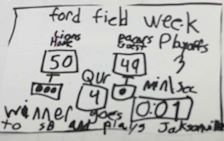 ford field week
lions pacers Playoffs
Home Guest 3
50 49
Qur
000 4 0 min/sec
0:01
winner goes
to SB and plays Jacksonville